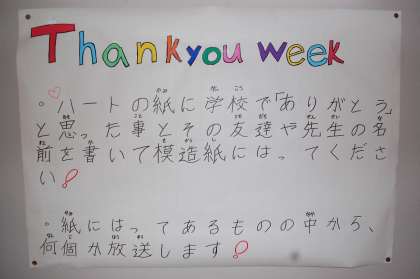 Thank you week
。ハートの紙に学校で「ありがとう」
と思った事とその友達や先生の名
前を書いて模造紙にはってくださ
い!
。紙にはってあるものの中から、
何個か放送します!